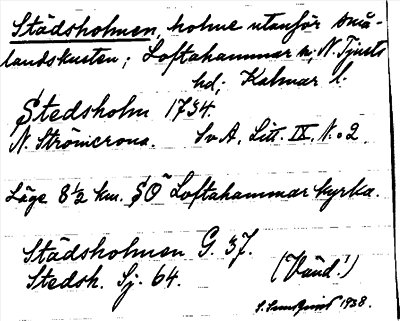 Städsholmen, holme utanför små-
landskusten; Loftahammar sn; N. Tjusts
hd; Kalmar l.
Stedsholm 1734.
N. Strömcrona. SvA. Litt. IX. N:o 2.
Läge 8 1/2 km. SO Loftahammar kyrka.
Städsholmen G. 37.
Stedsh. Sj. 64. (Vänd!)
1938.